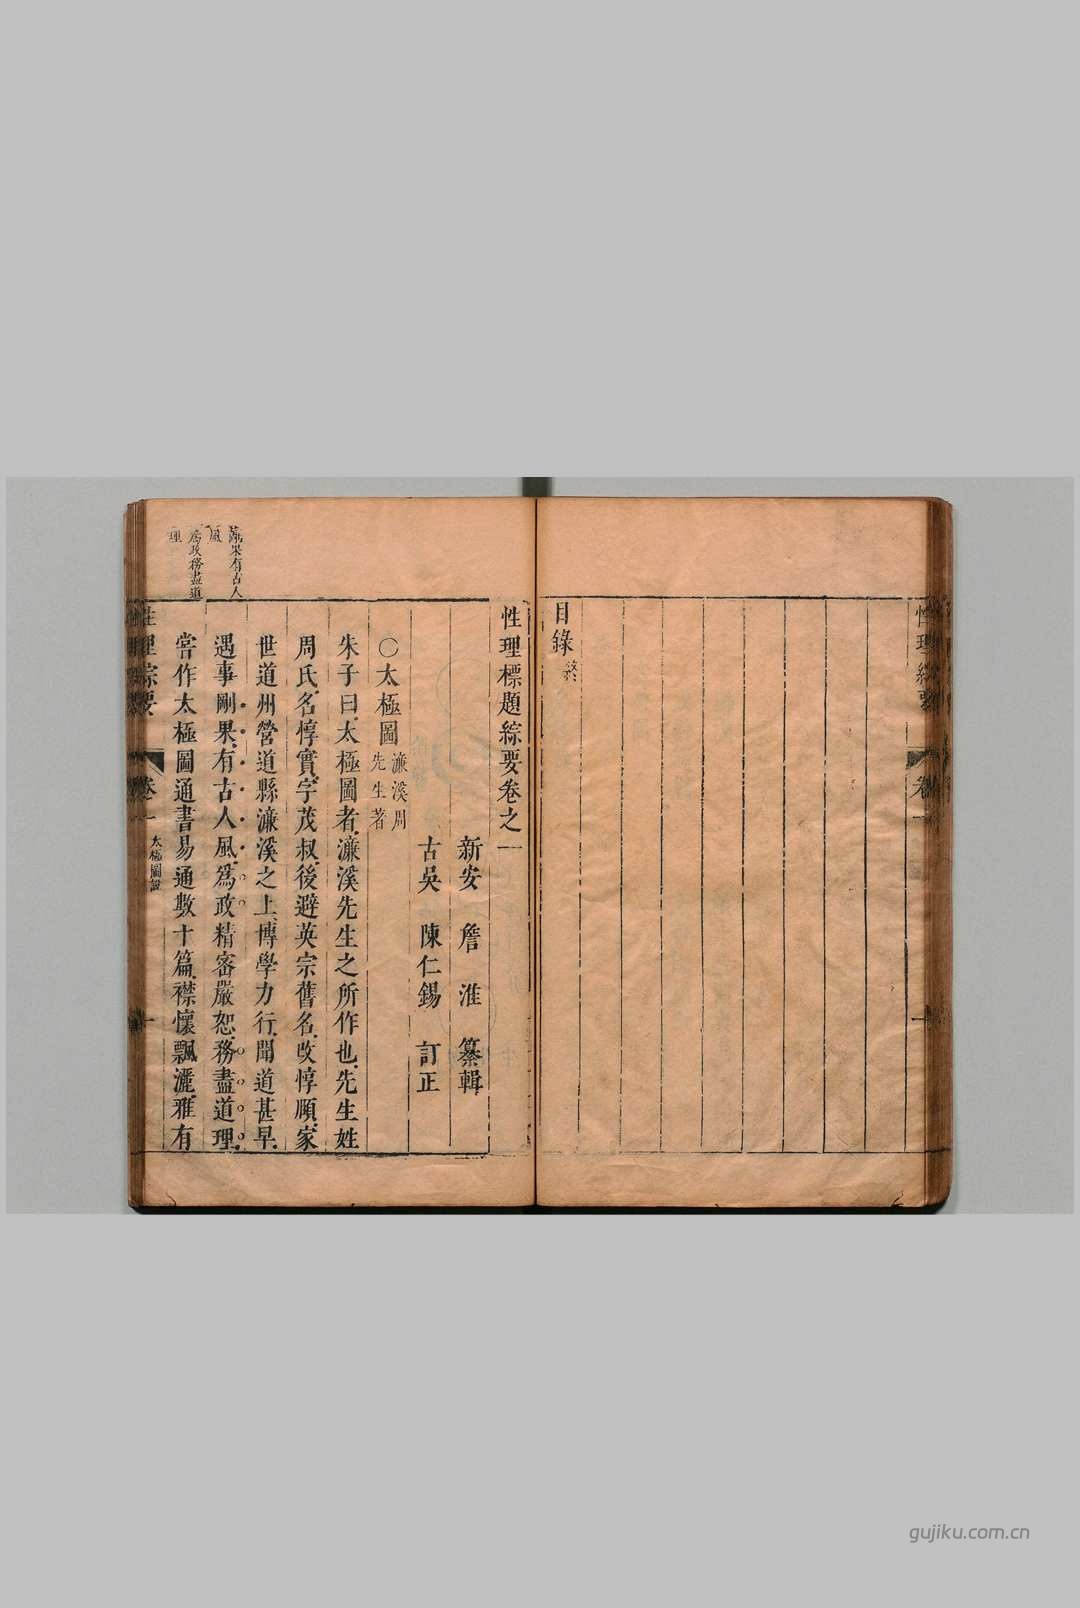 性理綜要
卷一
一
目錄終
性理標題綜要卷之一
新安 詹淮 纂輯
古吳 陳仁錫 訂正
○太極圖 濂溪周先生著
朱子曰太極圖者濂溪先生之所作也先生姓
周氏名惇實字茂叔後避英宗舊名改惇頤家
世道州營道縣濂溪之上博學力行聞道甚早
遇事剛果有古人風爲政精密嚴恕務盡道理
嘗作太極圖通書易通數十篇襟懷飄灑雅有
剛果有古人
風
爲政務盡道
理
性理綜要
卷一
太極圖說
一
gujiku.com.cn